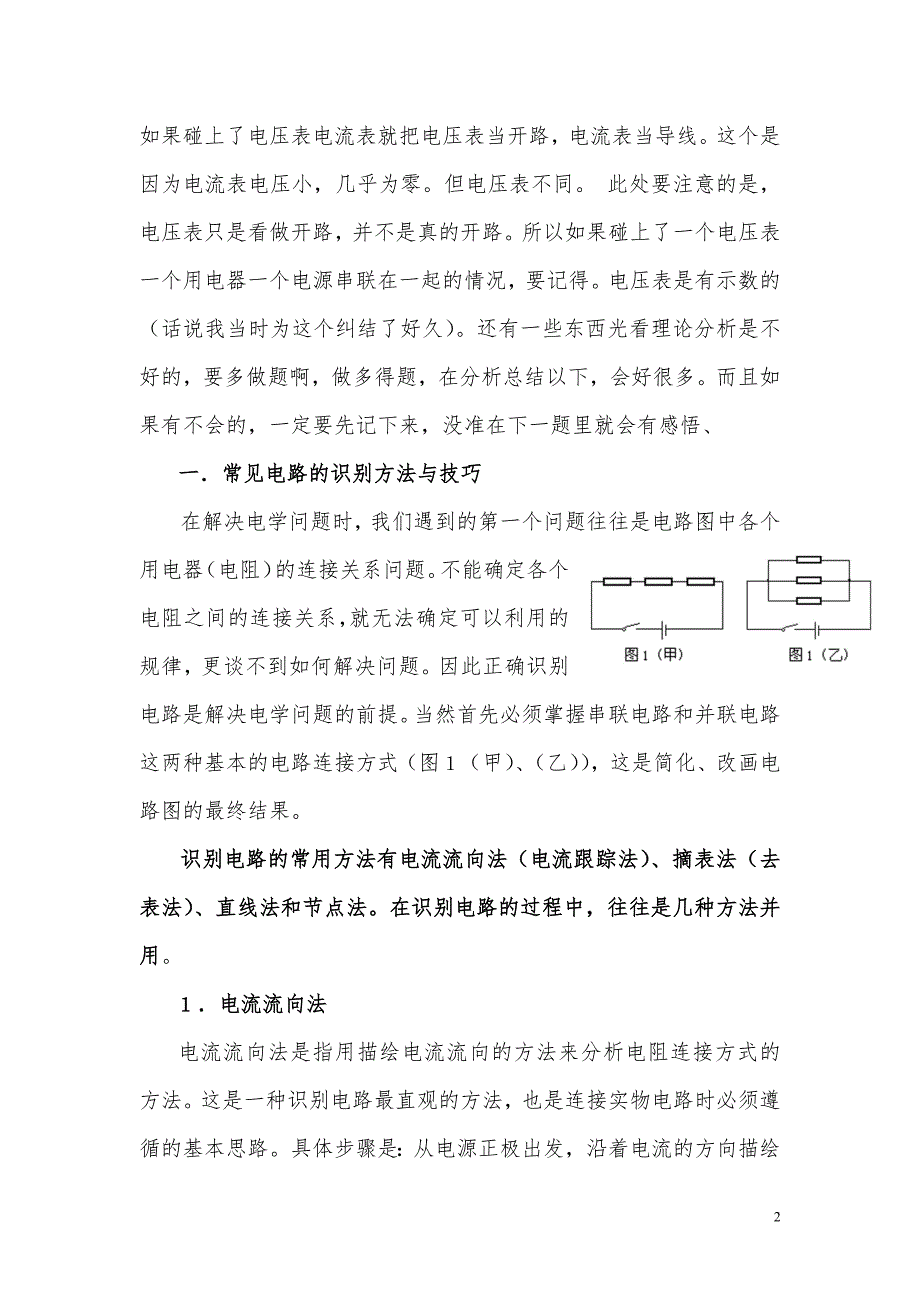 如果碰上了电压表电流表就把电压表当开路，电流表当导线。这个是
因为电流表电压小，几乎为零。但电压表不同。 此处要注意的是，
电压表只是看做开路，并不是真的开路。所以如果碰上了一个电压表
一个用电器一个电源串联在一起的情况，要记得。电压表是有示数的
（话说我当时为这个纠结了好久）。还有一些东西光看理论分析是不
好的，要多做题啊，做多得题，在分析总结以下，会好很多。而且如
果有不会的，一定要先记下来，没准在下一题里就会有感悟、
一．常见电路的识别方法与技巧
在解决电学问题时，我们遇到的第一个问题往往是电路图中各个
用电器（电阻）的连接关系问题。不能确定各个
电阻之间的连接关系，就无法确定可以利用的
规律，更谈不到如何解决问题。因此正确识别
图1（甲）
图1（乙）
电路是解决电学问题的前提。当然首先必须掌握串联电路和并联电路
这两种基本的电路连接方式（图1（甲）、（乙）），这是简化、改画电
路图的最终结果。
识别电路的常用方法有电流流向法（电流跟踪法）、摘表法（去
表法）、直线法和节点法。在识别电路的过程中，往往是几种方法并
用。
1．电流流向法
电流流向法是指用描绘电流流向的方法来分析电阻连接方式的
方法。这是一种识别电路最直观的方法，也是连接实物电路时必须遵
循的基本思路。具体步骤是：从电源正极出发，沿着电流的方向描绘
2